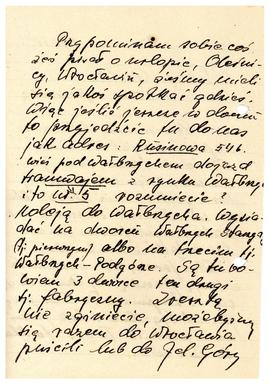 Przypominam sobie coś
żeś pisał o urlopie, Oleśni-
cy, Wrocławiu, żeśmy mieli
się jakoś spotkać gdzieś.
Więc jeśli jeszcze w domu
to przyjedźcie tu do nas
jak adres: Rusinowa 54b.
wieś pod Wałbrzychem dojazd
tramwajem z rynku Wałbrzych
i to nr 5 rozumiecie?
Koleją do Wałbrzycha. Wysia-
dać na dworcu Wałbrzych Starym
(tj. pierwszym) albo na trzecim tj.
Wałbrzych-Podgórze. Są tu bo-
wiem 3 dworce ten drugi
tj. fabryczny. Zresztą
nie zginiecie, możebyśmy
się razem do Wrocławia
puścili lub do Jel. Góry